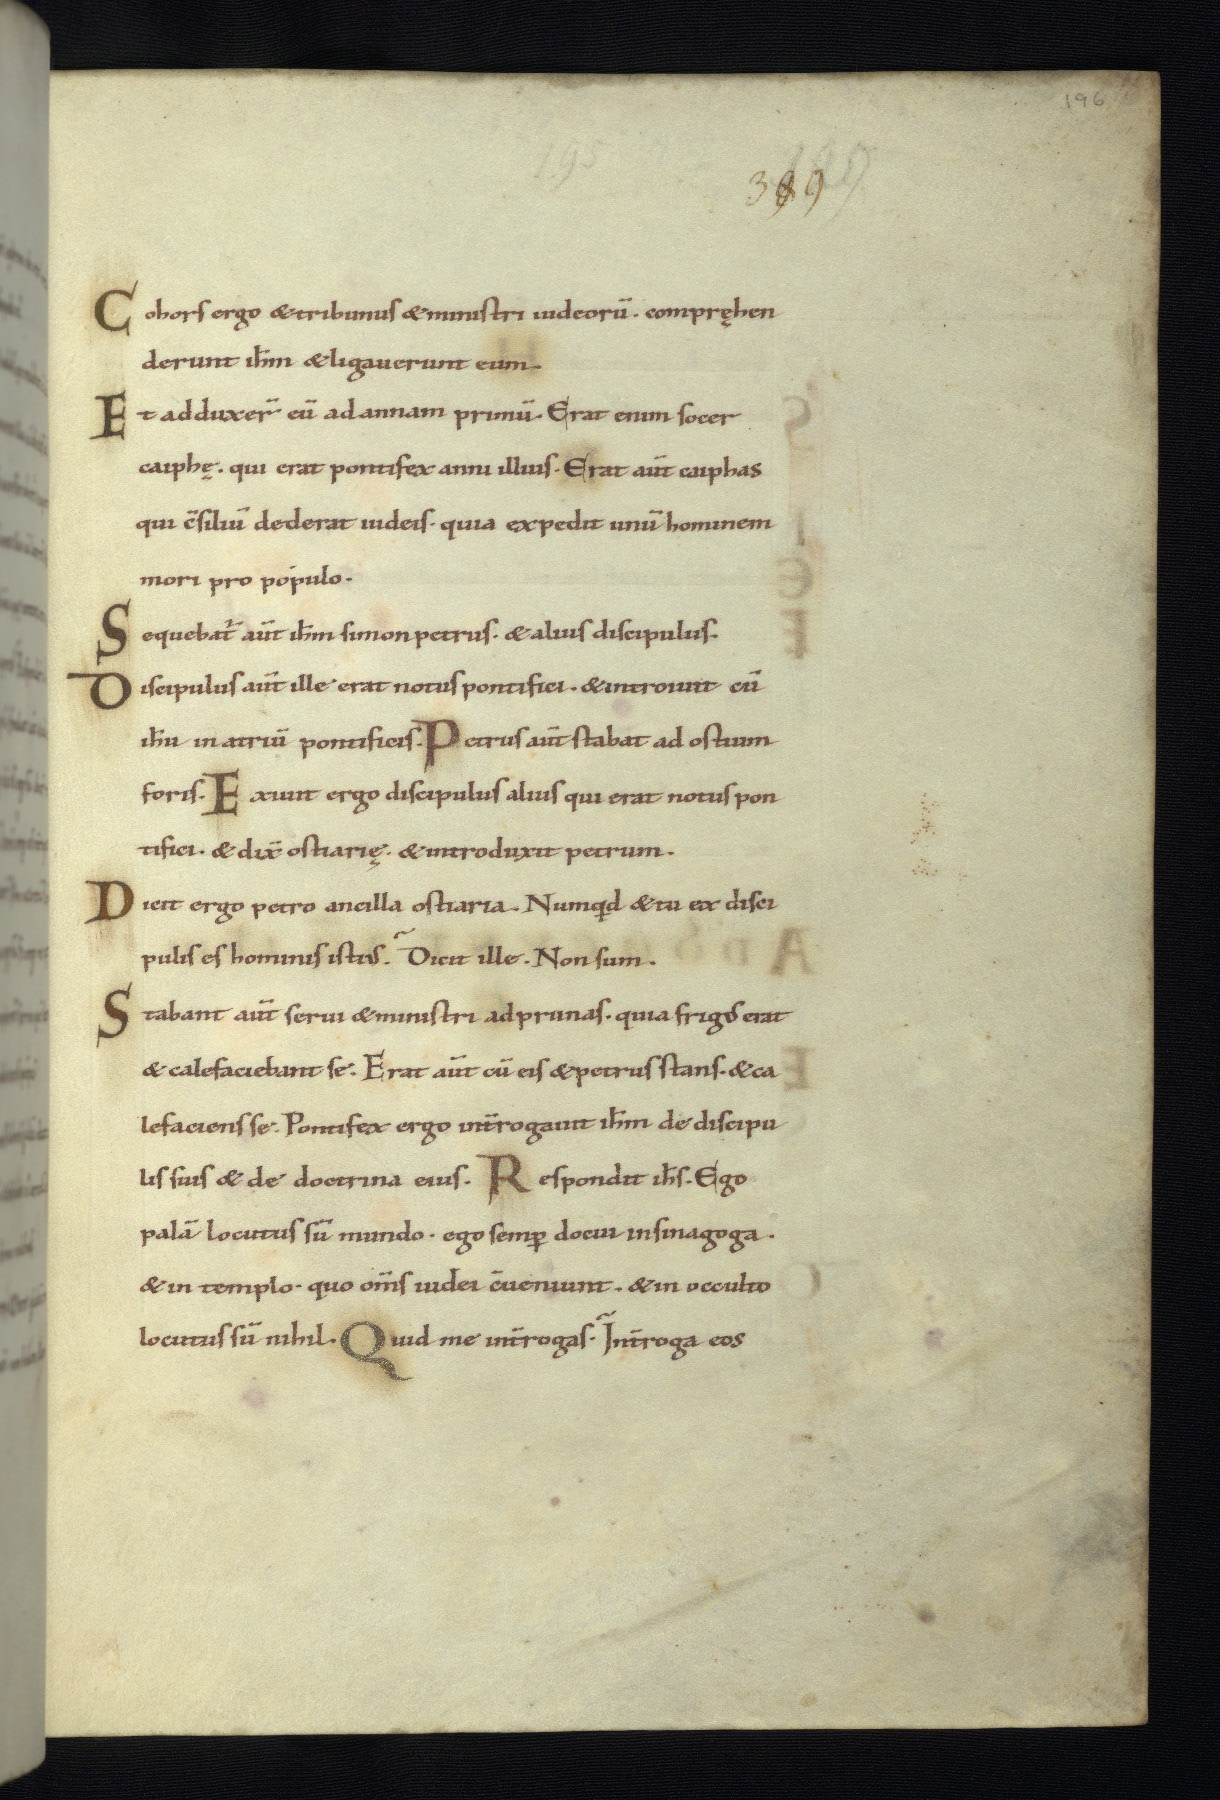 196
195
399
Cohors ergo & tribunus & ministri iudeorū. compręhen
derunt ihm̄ & ligauerunt eum.
Et adduxer̄ eū ad annam primū. Erat enim socer
caiphę. qui erat pontifex anni illius. Erat aut̄ caiphas
qui c̄siliū dederat iudeis. quia expedit unū hominem
mori pro populo.
Sequebat̄ aut̄ ihm̄ simon petrus. & alius discipulus.
Discipulus aut̄ ille erat notus pontifici. & introiuit cū
ihu̅ in atriū pontificis. Petrus aut̄ stabat ad ostium
foris. Exiuit ergo discipulus alius qui erat notus pon
tifici. & dix̄ ostiarię. & introduxit petrum.
Dicit ergo petro ancilla ostiaria. Numqd & tu ex disci
pulis es hominis istius. Dicit ille. Non sum.
Stabant aut̄ serui & ministri ad prunas. quia frigus erat
& calefaciebant se. Erat aut̄ cū eis & petrus stans. & ca
lefaciens se. Pontifex ergo int̄rogauit ihm̄ de discipu
lis suis & de doctrina eius. Respondit ihs̄. Ego
palā locutus sū mundo. ego semp̄ docui in sinagoga.
& in templo. quo om̄s iudei c̄ueniunt. & in occulto
locutus sū nihil. Quid me int̄rogas. Int̄roga eos